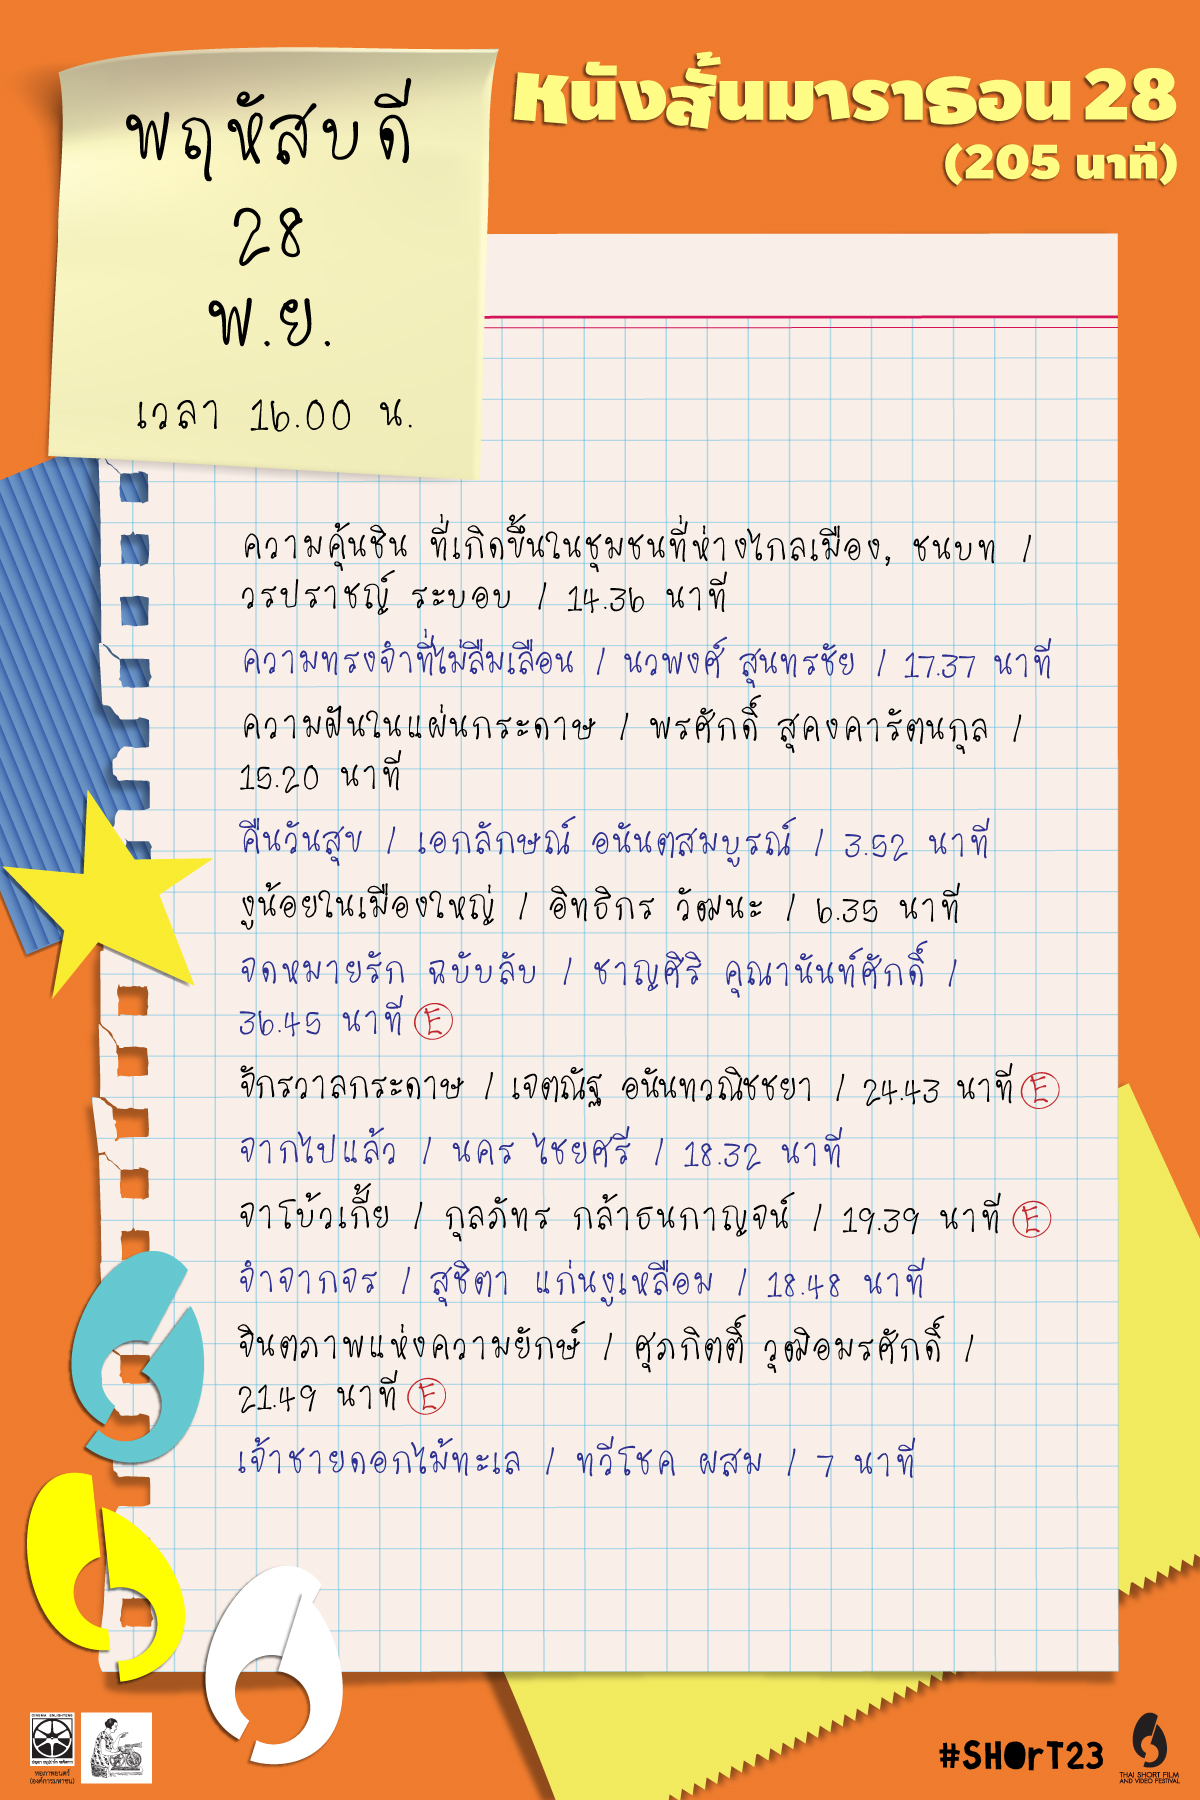 พฤหัสบดี
28
พ.ย.
เวลา 16.00 น.
หนังสั้นมาราธอน 28
(205 นาที)
ความคุ้นชิน ที่เกิดขึ้นในชุมชนที่ห่างไกลเมือง, ชนบท /
วรปราชญ์ ระบอบ / 14.36 นาที
ความทรงจำที่ไม่ลืมเลือน / นวพงศ์ สุนทรชัย / 17.37 นาที
ความฝันในแผ่นกระดาษ / พรศักดิ์ สุคงคารัตนกุล /
15.20 นาที
คืนวันสุข / เอกลักษณ์ อนันตสมบูรณ์ / 3.52 นาที
งูน้อยในเมืองใหญ่ / อิทธิกร วัฒนะ / 6.35 นาที
จดหมายรัก ฉบับลับ / ชาญศิริ คุณานันท์ศักดิ์ /
36.45 นาที E
จักรวาลกระดาษ / เจตณัฐ อนันทวณิชชยา / 24.43 นาที E
จากไปแล้ว / นคร ไชยศรี / 18.32 นาที
จาโบ้วเกี้ย / กุลภัทร กล้าธนกาญจน์ / 19.39 นาที E
จำจากจร / สุชิตา แก่นงูเหลือม / 18.48 นาที
จินตภาพแห่งความยักษ์ / ศุภกิตติ์ วุฒิอมรศักดิ์ /
21.49 นาที E
เจ้าชายดอกไม้ทะเล / ทวีโชค ผสม / 7 นาที
หอภาพยนตร์
(องค์การมหาชน)
#SHOrT23
THAI SHORT FILM
AND VIDEO FESTIVAL